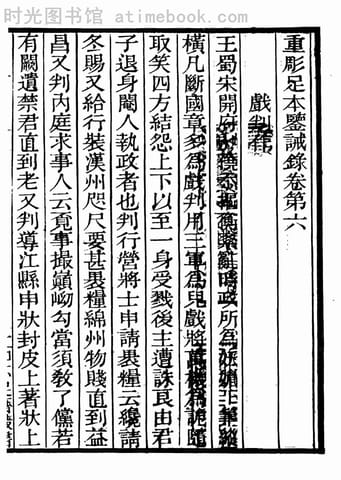 时光图书馆 - www.atimebook.com
重彫足本鑒誡錄卷第六
戲判
王蜀宋開府時政所為
橫凡斷國章多為戲判用三軍為兒戲將萬機為詭隨
取笑四方結怨上下以至一身受戮後主遭誅良由君
子退身閹人執政者也判行營將士申請裹糧云纔請
冬賜又給行裝漢州咫尺要甚裹糧綿州物賤直到益
昌又判內庭求事人云覓事撮巔㘭勾當須教了儻若
有闕遺禁君直到老又判導江縣申狀封皮上著狀上